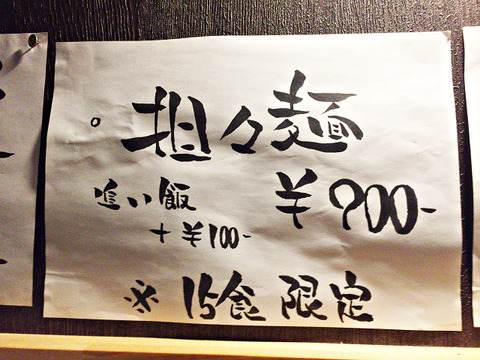 。担々麺
追い飯 ¥900-
+¥100-
※15食限定